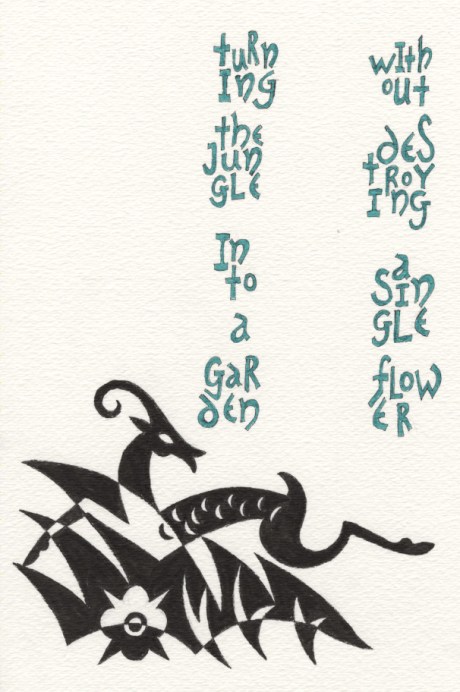 turn
ing
the
jun
gle
in
to
a
gar
den
with
out
des
troy
ing
a
sin
gle
flow
er